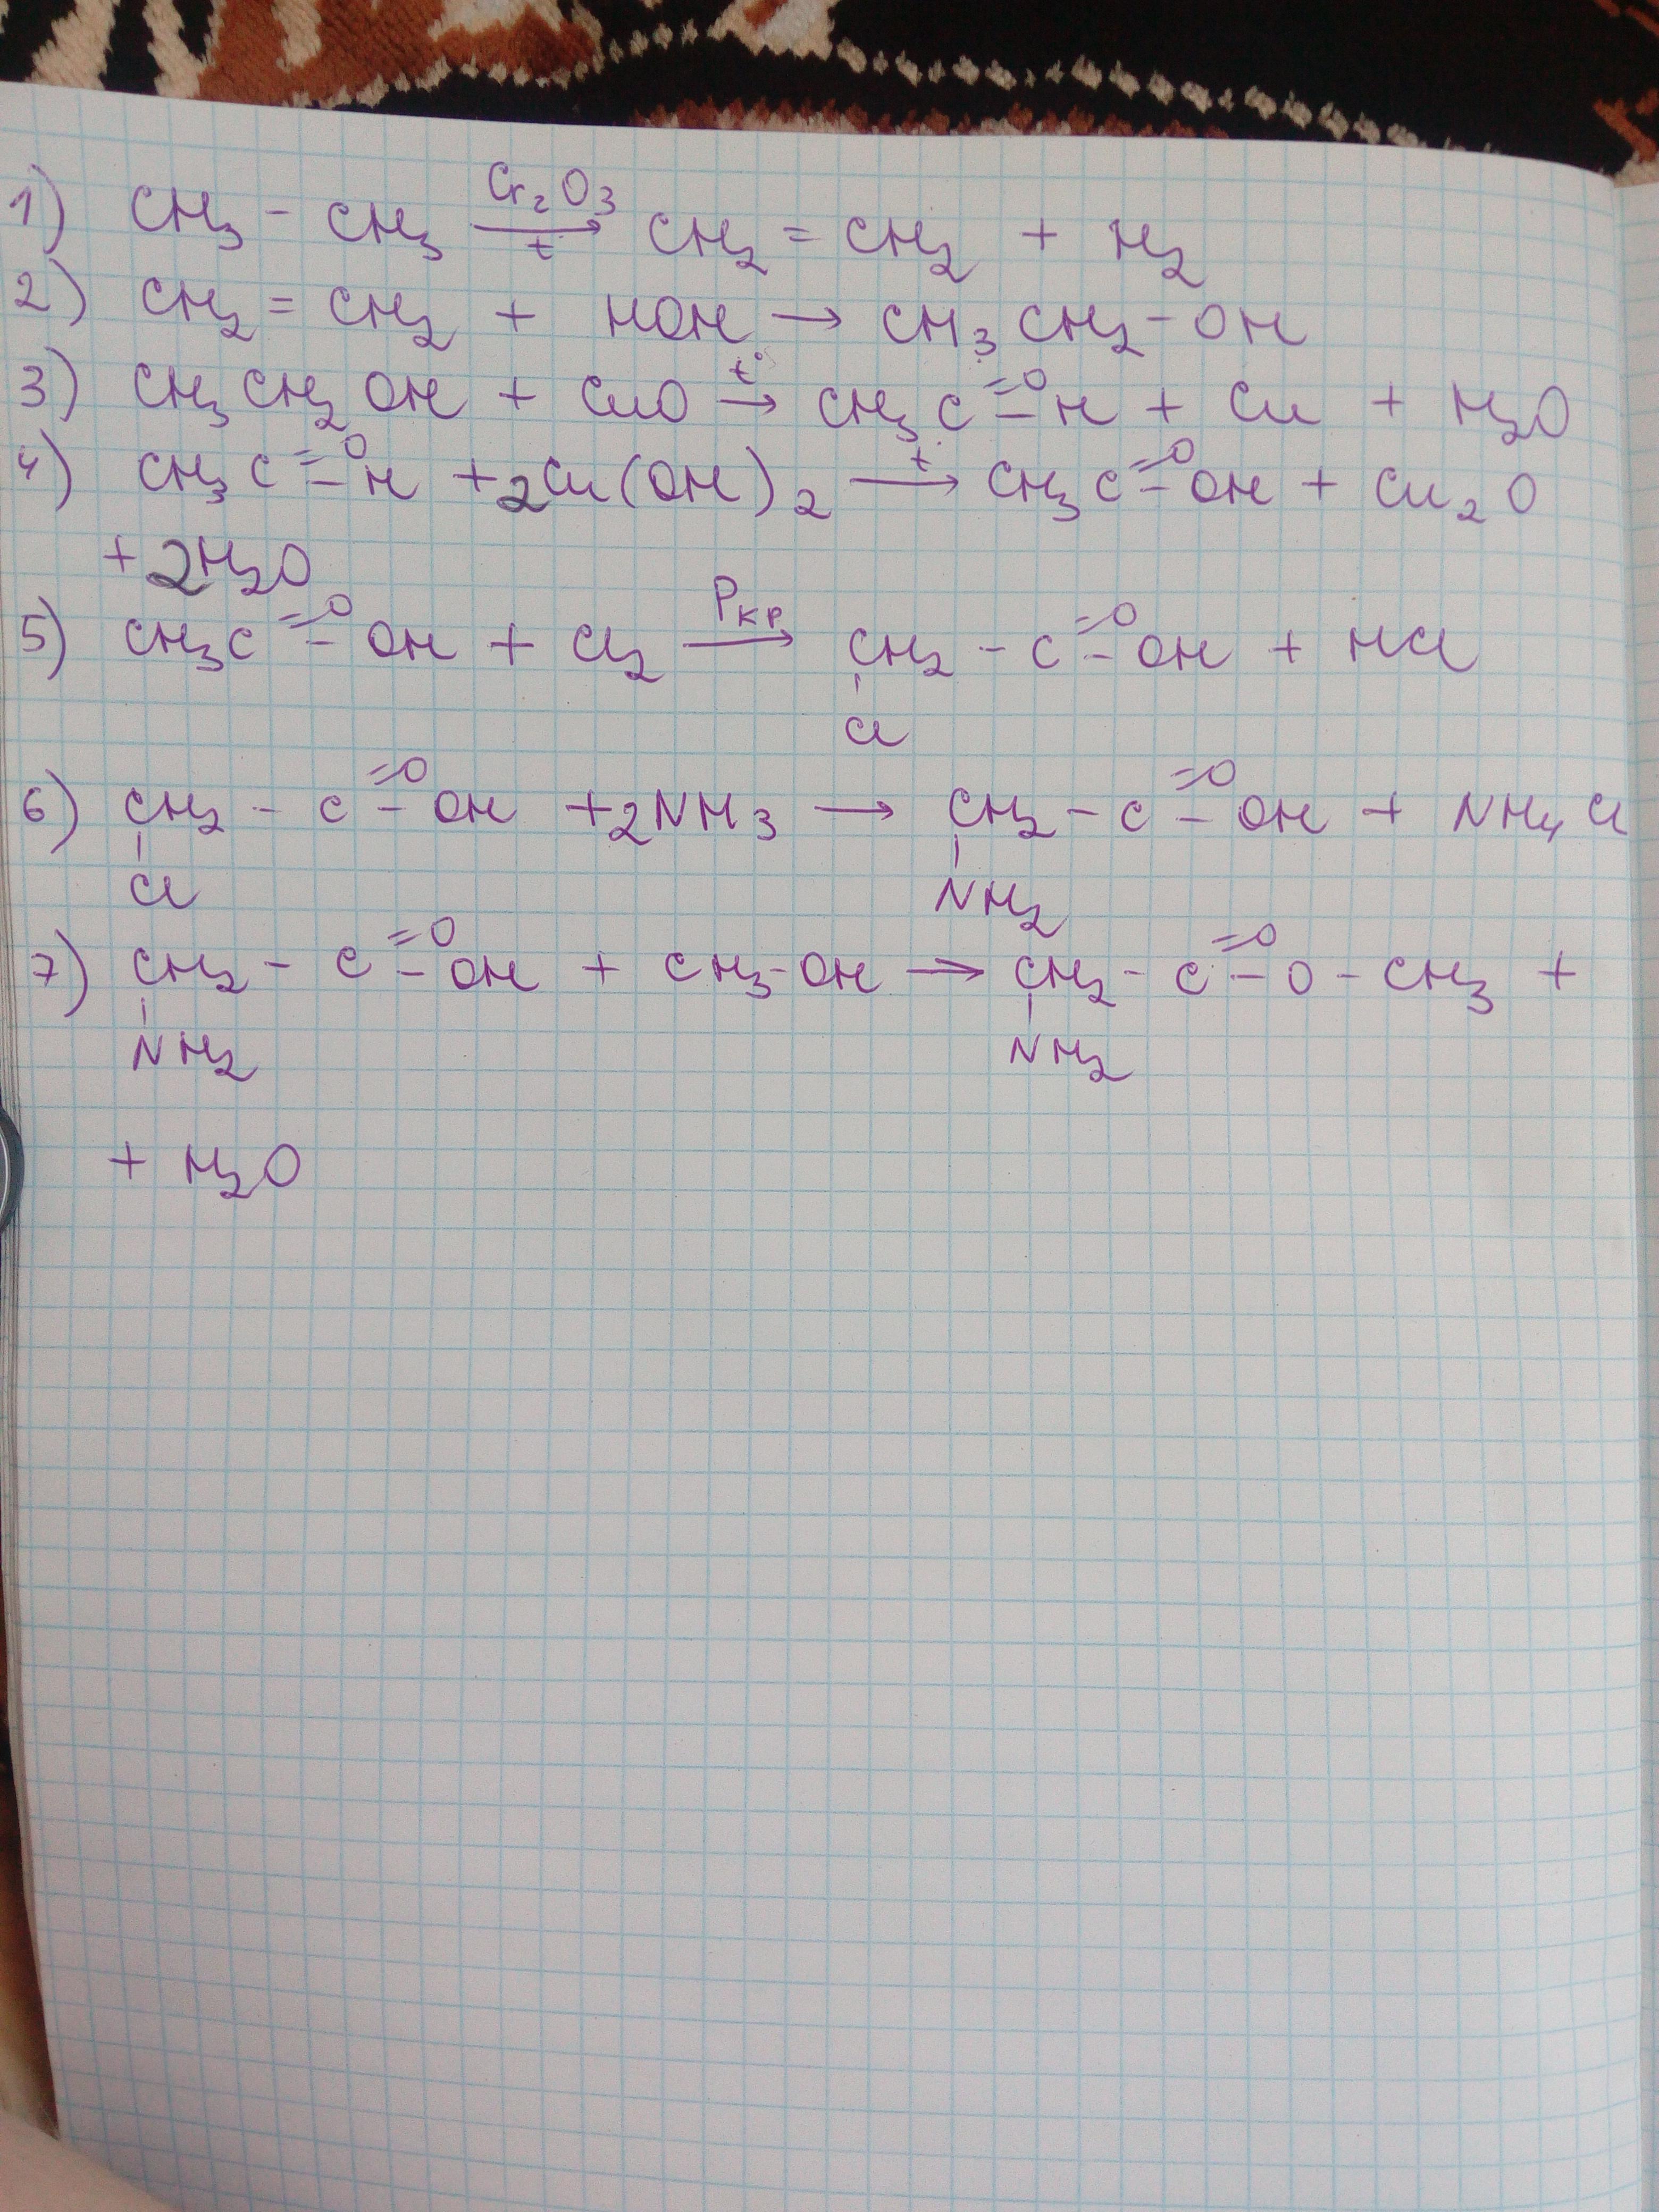 1) CH3 - CH3 Cr2O3 →t CH2 = CH2 + H2
2) CH2 = CH2 + HOH → CH3CH2-OH
3) CH3CH2OH + CuO t°→ CH3C=O-H + Cu + H2O
4) CH3C=O-H + 2Cu(OH)2 t→ CH3C=O-OH + Cu2O
+ 2H2O
5) CH3C=O-OH + Cl2 Pкр→ CH2 - C=O-OH + HCl
Cl
6) CH2 - C=O-OH + 2NH3 → CH2 - C=O-OH + NH4Cl
Cl NH2
7) CH2 - C=O-OH + CH3-OH → CH2 - C=O-O-CH3 +
NH2 NH2
+ H2O